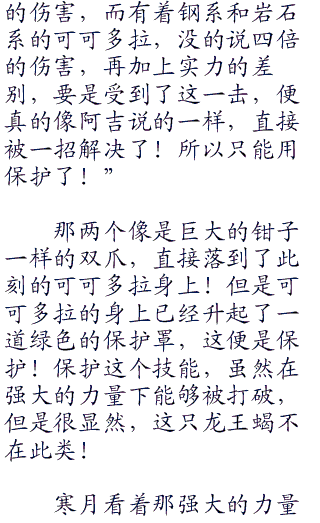 的伤害，而有着钢系和岩石
系的可可多拉，没的说四倍
的伤害，再加上实力的差
别，要是受到了这一击，便
真的像阿吉说的一样，直接
被一招解决了！所以只能用
保护了！”
那两个像是巨大的钳子
一样的双爪，直接落到了此
刻的可可多拉身上！但是可
可多拉的身上已经升起了一
道绿色的保护罩，这便是保
护！保护这个技能，虽然在
强大的力量下能够被打破，
但是很显然，这只龙王蝎不
在此类！
寒月看着那强大的力量